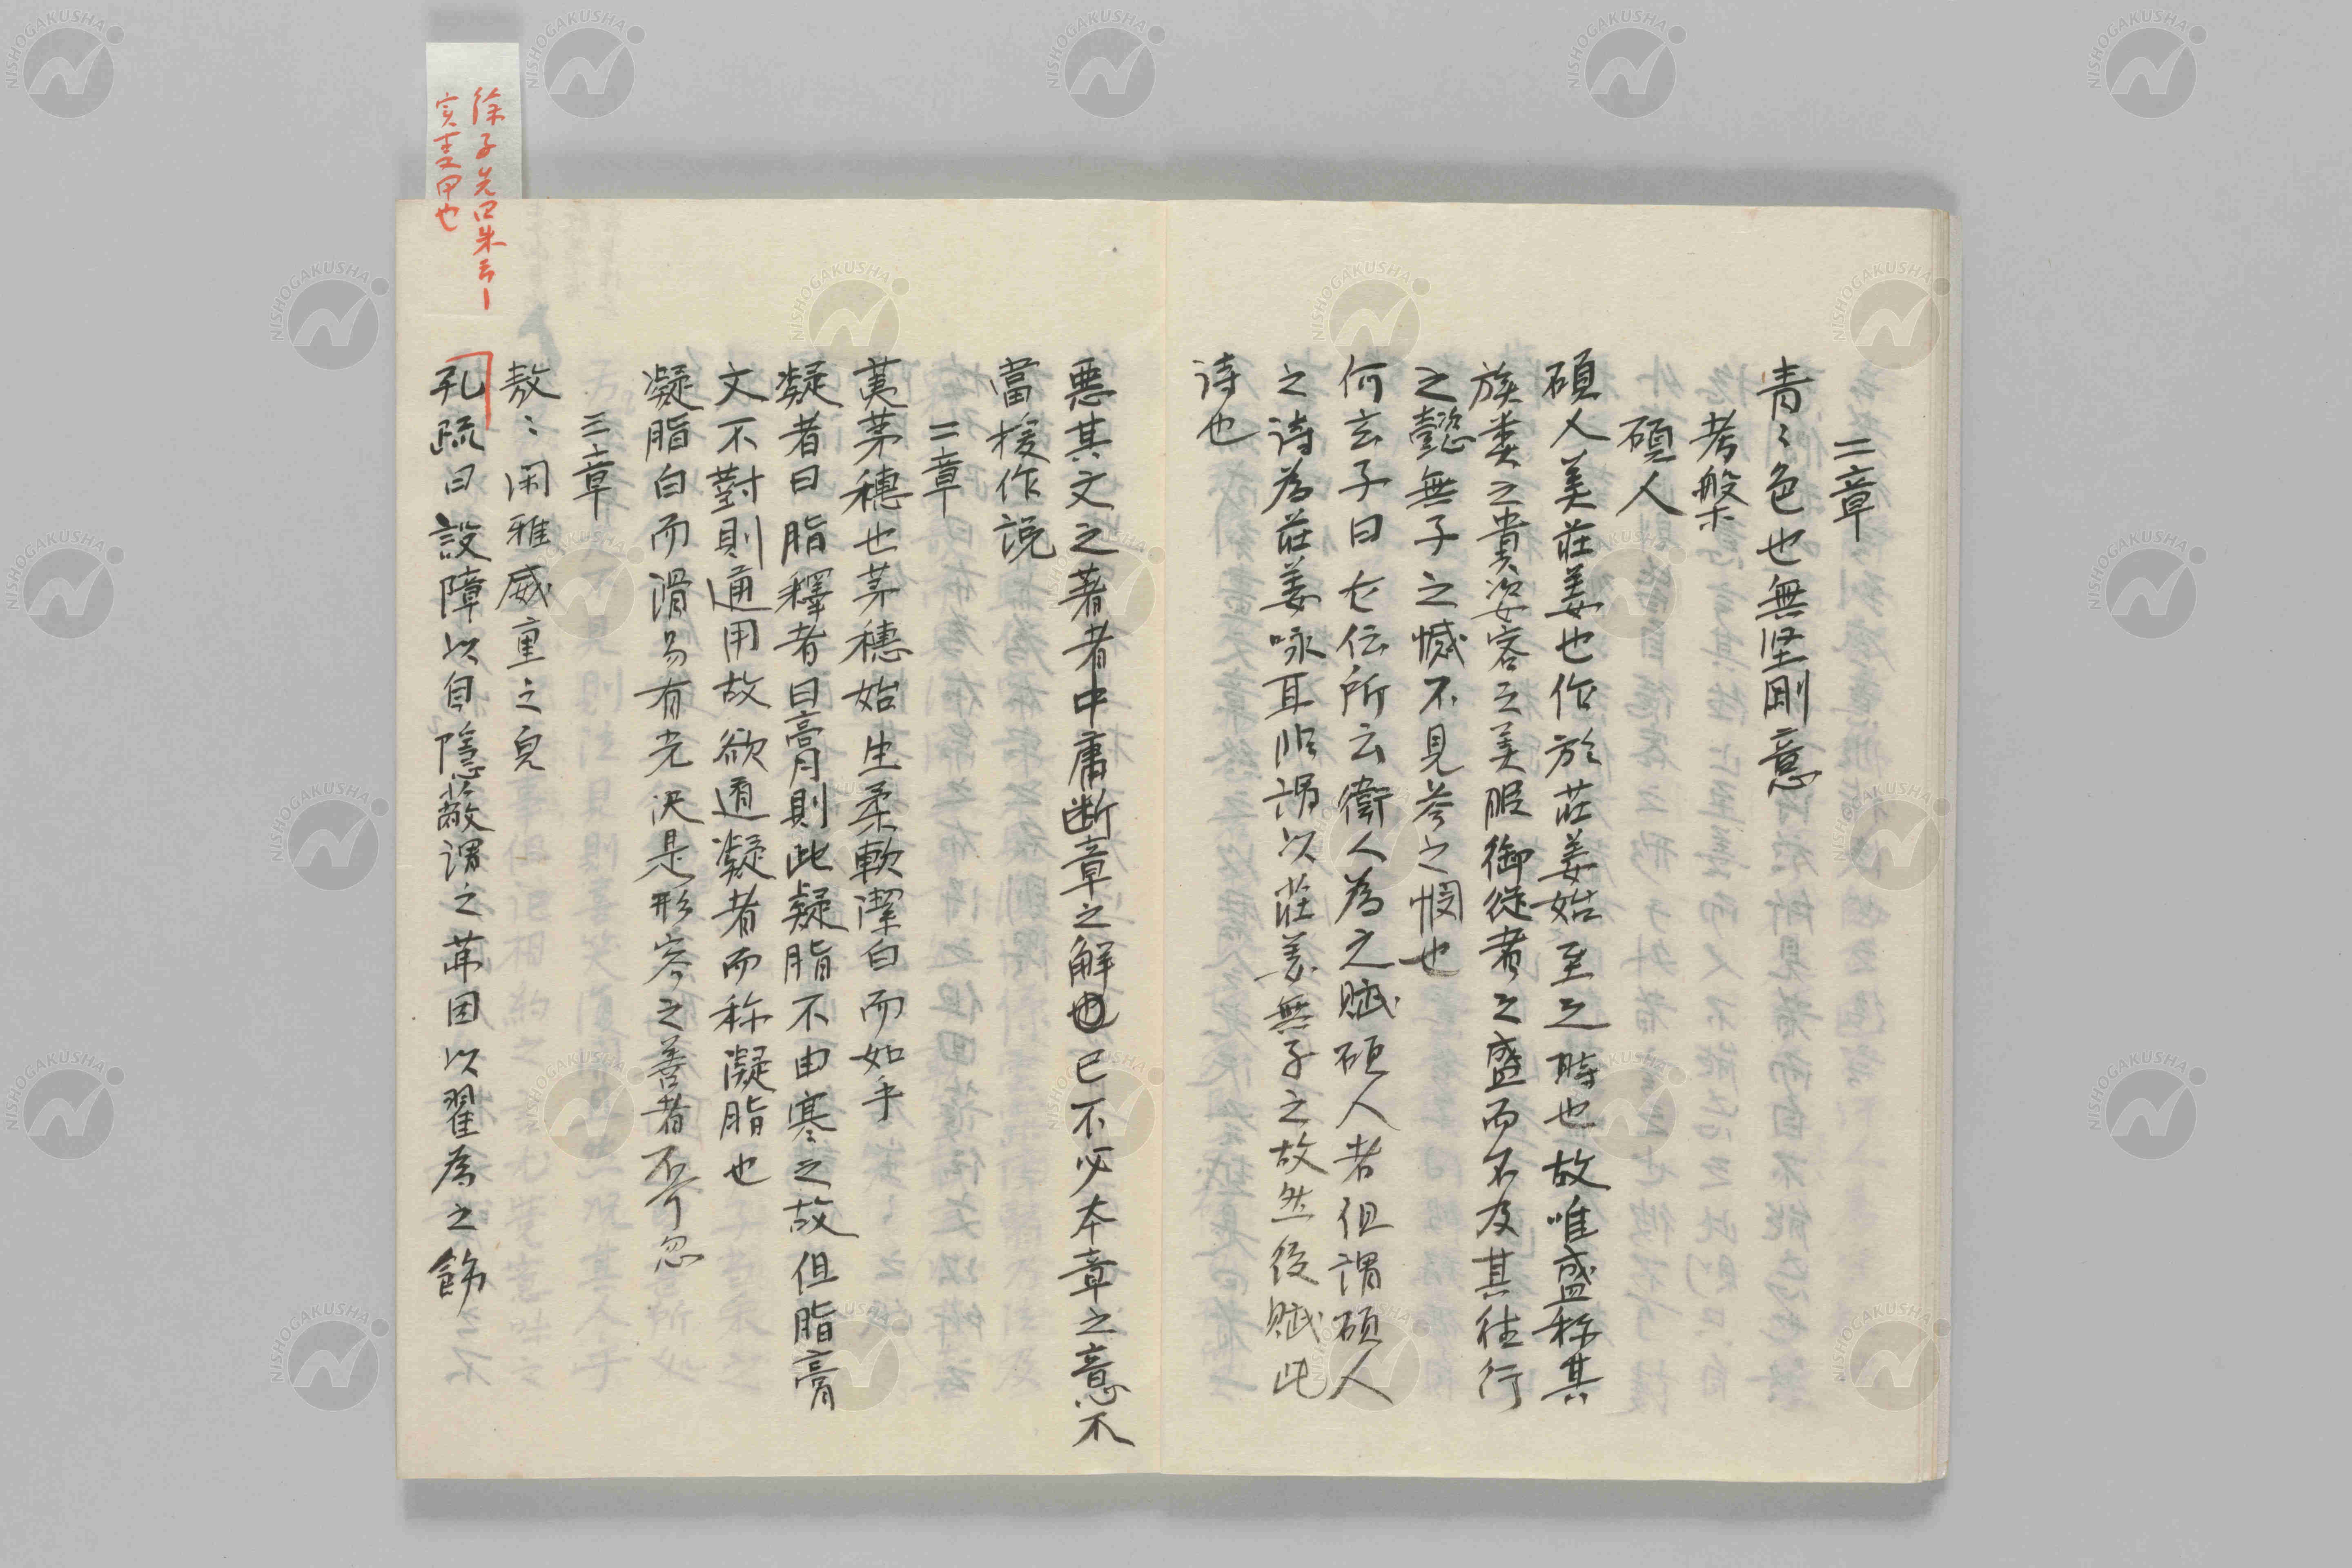 二章
青〻色也無坚剛意
考槃
碩人
碩人美莊姜也作於莊姜始至之時也故唯盛称其
族类之貴姿容之美服御従者之盛而不及其往行
之懿無子之憾不見荅之憫也
何玄子曰左伝所云衛人為之賦碩人者但謂碩人
之詩為莊姜咏耳非謂以莊姜無子之故然後賦此
诗也
悪其文之著者中庸断章之解也已不必本章之意不
當援作説
二章
荑茅穗也茅穗始生柔軟潔白而如手
凝者曰脂釋者曰膏則此凝脂不由寒之故但脂膏
文不對則通用故欲道凝者而称凝脂也
凝脂白而滑易有光決是形容之善者不可忽
三章
敖〻闲雅威重之皃
孔疏曰設障以自隱蔽謂之茀因以翟為之飾
徐子先曰朱
也
NISHOGAKUSHA